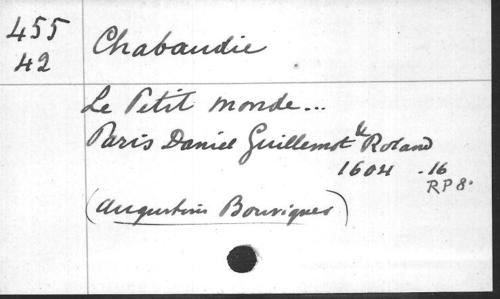 455
42
Chabaudie
Le Petit monde...
Paris Daniel Guillemot & Roland
1604 - 16
RP 8°
(Augustins Bouvignes)